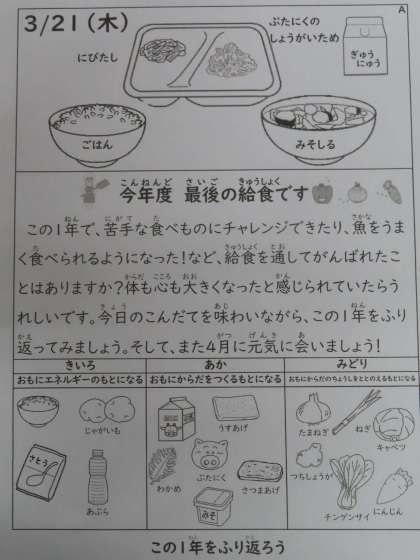 A
3/21(木)
にびたし
ぶたにくの
しょうがいため
ぎゅう
にゅう
ごはん
みそしる
こんねんど さいご きゅうしょく
今年度 最後の給食です
ねん にがて た さかな
この1年で、苦手な食べものにチャレンジできたり、魚をうま
た きゅうしょく とお
く食べられるようになった!など、給食を通してがんばれたこ
からだ こころ おお かん
とはありますか?体も心も大きくなったと感じられていたらう
きょう あじ ねん
れしいです。今日のこんだてを味わいながら、この1年をふり
かえ がつ げんき あ
返ってみましょう。そして、また4月に元気に会いましょう!
きいろ
おもにエネルギーのもとになる
じゃがいも
さとう
あぶら
あか
おもにからだをつくるもとになる
うすあげ
わかめ
ぶたにく
さつまあげ
みそ
みどり
おもにからだのちょうしをととのえるもとになる
たまねぎ
ねぎ
キャベツ
つちしょうが
チンゲンサイ
にんじん
ねん かえ
この1年をふり返ろう